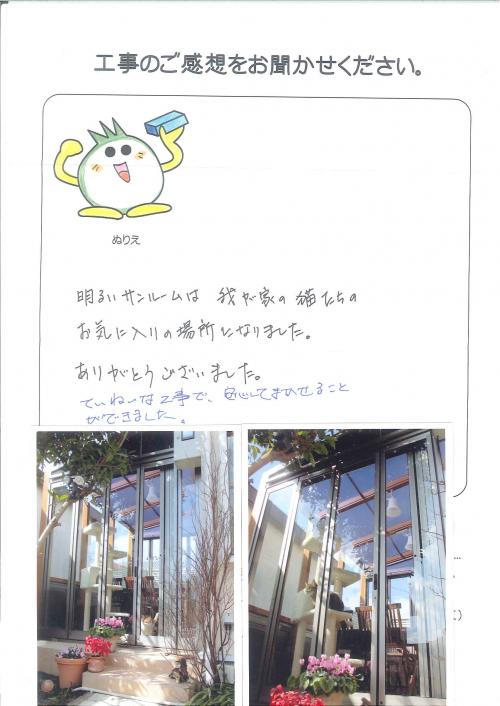 工事のご感想をお聞かせください。
ぬりえ
明るいサンルームは 我が家の猫たちの
お気に入りの場所になりました。
ありがとうございました。
ていねいな工事で、安心してまかせること
ができました。